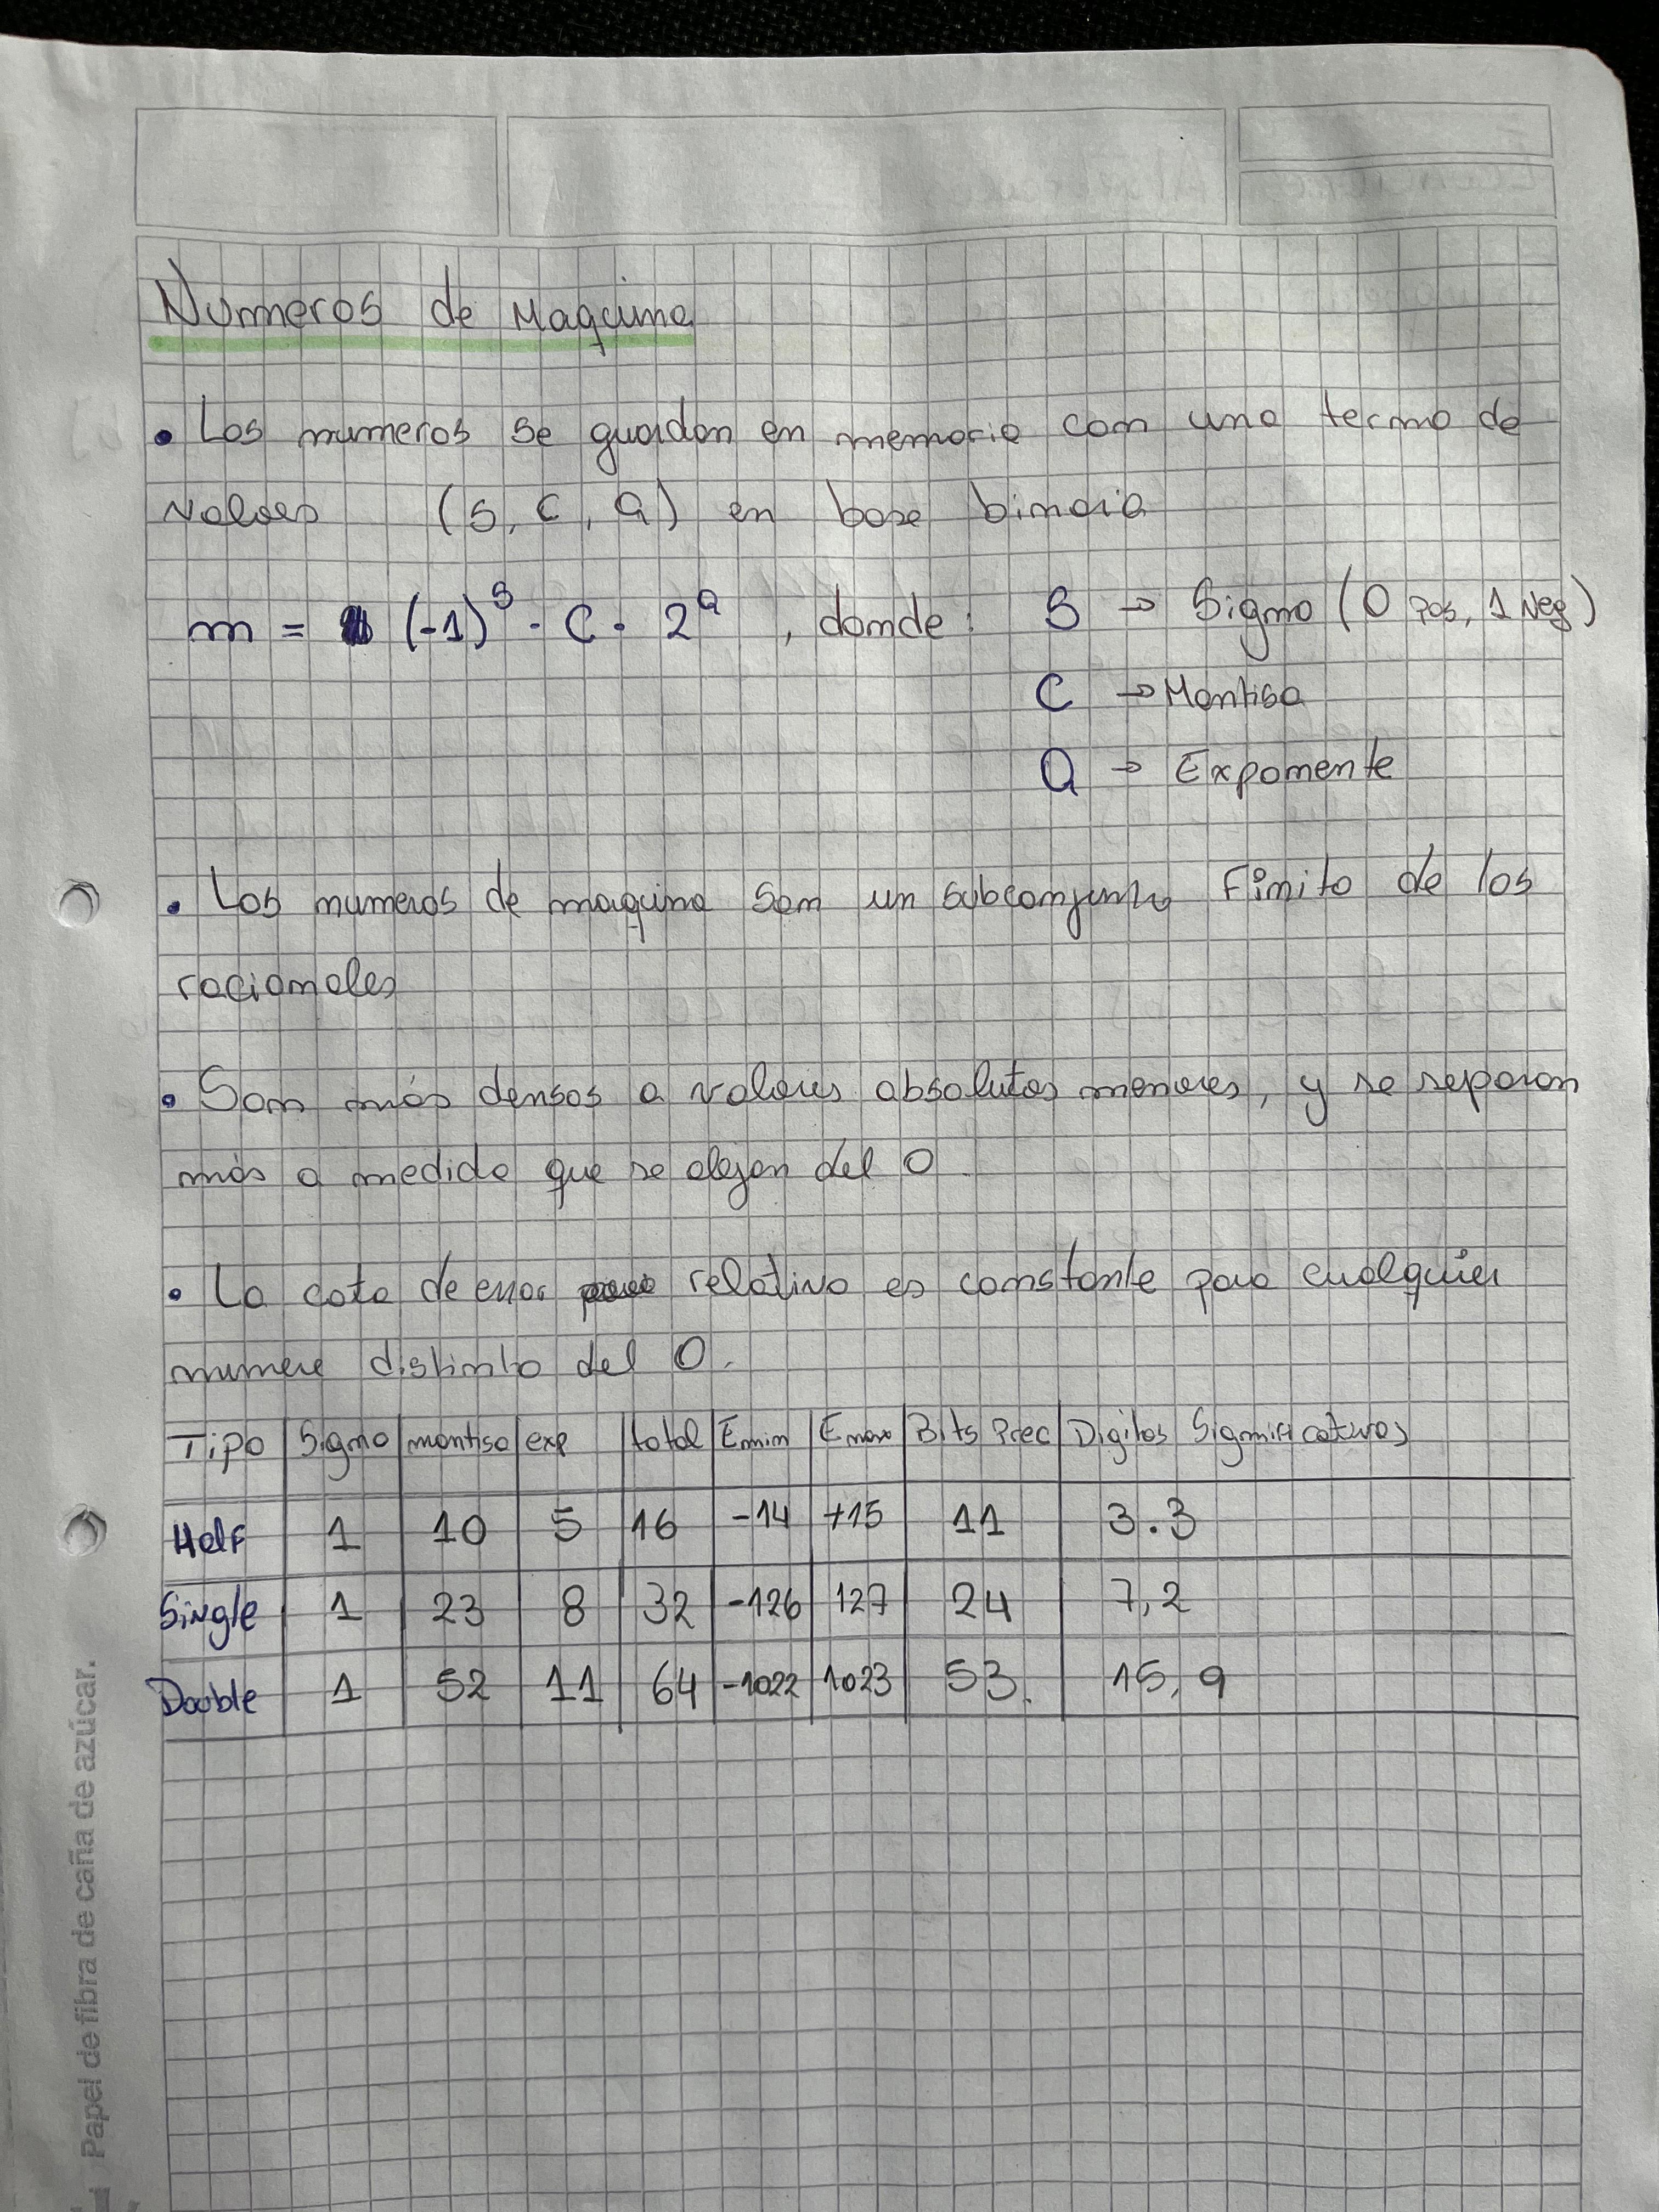 Numeros de Maquina
• Los numeros se guardan en memoria con una terna de
valores (S, C, Q) en base binaria
n = (-1)^S · C · 2^Q , donde: S → Signo (0 Pos, 1 Neg)
C → Mantisa
Q → Exponente
• Los numeros de maquina son un subconjunto Finito de los
racionales
• Son más densos a valores absolutos menores, y se separan
más a medida que se alejan del 0.
• La cota de error relativo es constante para cualquier
numero distinto del 0.
Tipo | Signo | mantisa | exp | total | Emin | Emax | Bits Prec | Digitos Significativos
Half | 1 | 10 | 5 | 16 | -14 | +15 | 11 | 3.3
Single | 1 | 23 | 8 | 32 | -126 | 127 | 24 | 7,2
Double | 1 | 52 | 11 | 64 | -1022 | 1023 | 53. | 15,9
Papel de fibra de caña de azúcar.